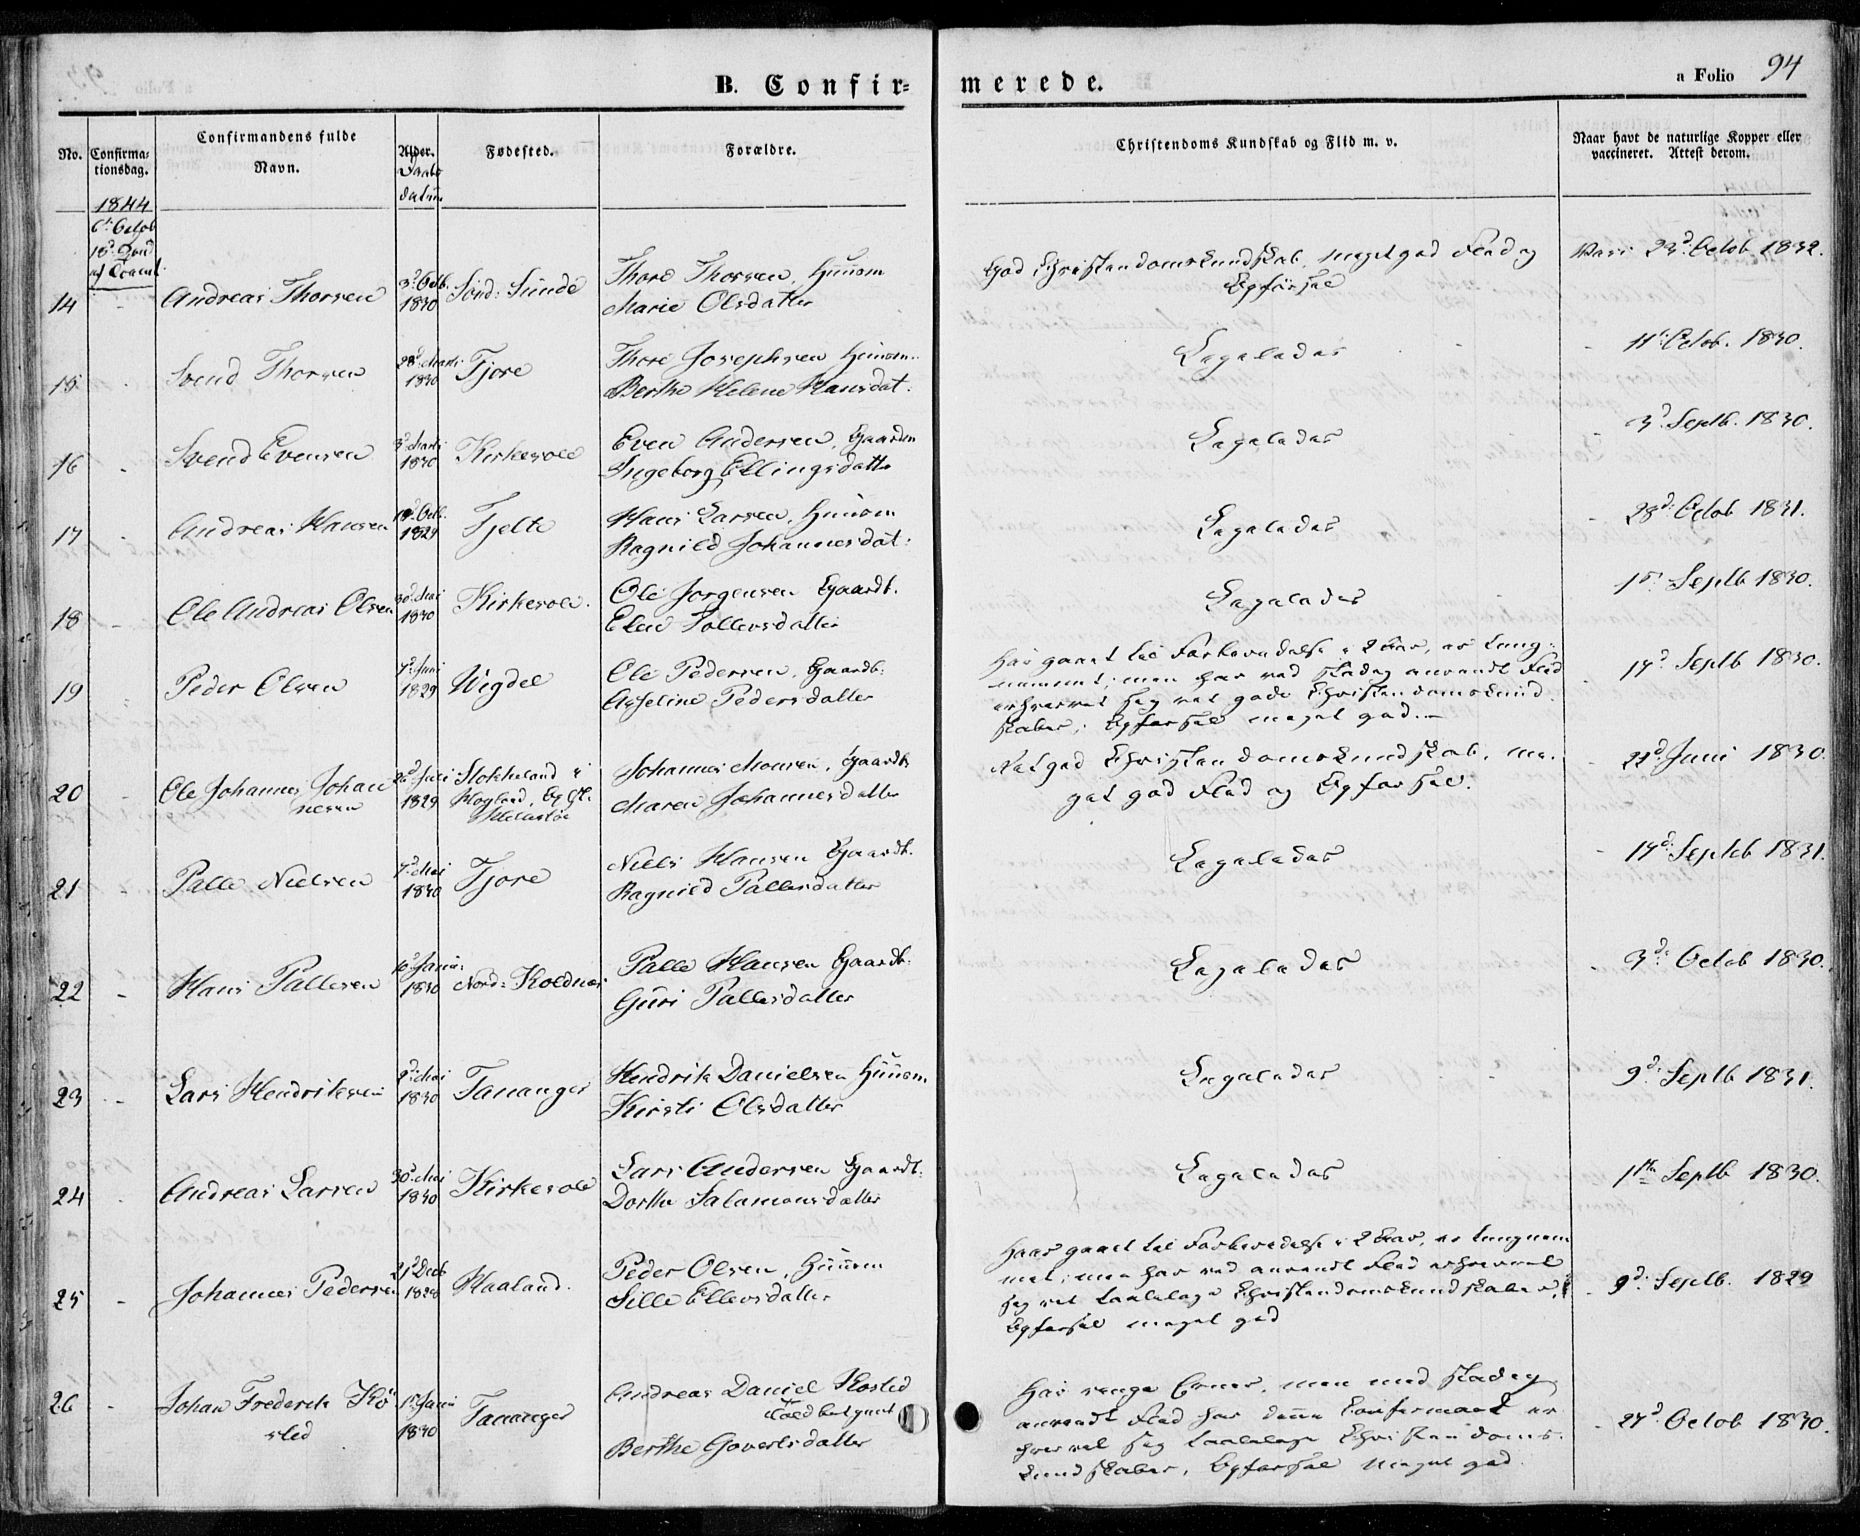 B. Confir=
merede.
a Folio 94
No.
Confirma-
tionsdag.
Confirmandens fulde
Navn.
Alder.
Daabs
datum
Fødested.
Forældre.
Christendoms Kundskab og Flid m. v.
Naar havt de naturlige Kopper eller
vaccineret. Attest derom.
1844
6te Octob
18d Sønd
af Trinit
14 Andreas Thorsen 3d Octb. 1830 Sønd: Sunde
Thore Thorsen, Huusm
Marie Olsdatter
God Christendomskundskab, meget god Flid og
Opførsel
Vacc 23d Octob 1832.
15 Svend Thorsen 28d Marti 1830 Tjore
Thore Josephsen Huusm.
Berthe Helene Hansdat.
Ligeledes
11te Octob. 1830.
16 Svend Evensen 3d Marti 1830 Kirkesole
Even Andersen, Gaardm
Ingeborg Ellingsdatter
Ligeledes
3d Septb. 1830.
17 Andreas Hansen 18d Octb. 1829 Tjelte
Hans Larsen, Huusm
Ragnild Johannesdat:
Ligeledes
28d Octob 1831.
18 Ole Andreas Olsen 30d Mai 1830 Kirkesole.
Ole Jorgensen Gaardb.
Elen Tollevsdatter
Ligeledes
1st Septb 1830.
19 Peder Olsen 7d Juni 1829 Wigdel
Ole Pedersen, Gaardb.
Axeline Pedersdatter
Har gaaet til Forberedelse i 2 Aar, er tung-
nemmet; men har ved stadig anvendt Flid
erhvervet sig ret gode Christendomskund
skaber; Opførsel meget god.
17d Septb 1830.
20 Ole Johannes Johan
nesen 26d Juli 1829 Stokkeland i
Hogland,
Johannes Monsen, Gaardb
Maren Johannesdatter
Ret god Christendomskundskab, me-
get god Flid og Opførsel.
21d Juni 1830.
21 Palle Nielsen 7d Mai 1830 Tjore
Niels Hansen Gaardb.
Ragnild Pallesdatter
Ligeledes
17d Septeb 1831.
22 Hans Pallesen 10d Januar 1830 Nord: Koldnes
Palle Hansen Gaardb.
Guri Pallesdatter
Ligeledes
3d Octob 1830.
23 Lars Hendriksen 2d Mai 1830 Tananger
Hendrik Danielsen Huusm.
Kirsti Olsdatter
Ligeledes
9d Septb 1831.
24 Andreas Larsen 30d Mai 1830 Kirkesole
Lars Andersen Gaardb.
Dorthe Salamonsdatter
Ligeledes
1ste Septb 1830.
25 Johannes Pedersen 21d Decb 1828 Haaland.
Peder Olsen, Huusm
Sille Ellevsdatter
Haar gaaet til Forberedelse i 2 Aar, er tungnem
met; men har ved anvendt Flid erhvervet
sig ret taalelige Christendomskundskaber,
Opførsel meget god
9d Septb. 1829
26 Johan Frederik Kø
sted 1st Janu 1830 Tananger
Andreas Daniel Kosted
Toldbetjent
Berthe Govertsdatter
Har ringe Evner, men med stadig
anvendt Flid har denne Confirmand er
hvervet sig taalelige Christendoms-
kundskaber, Opførsel meget god.
27d Octob 1830.